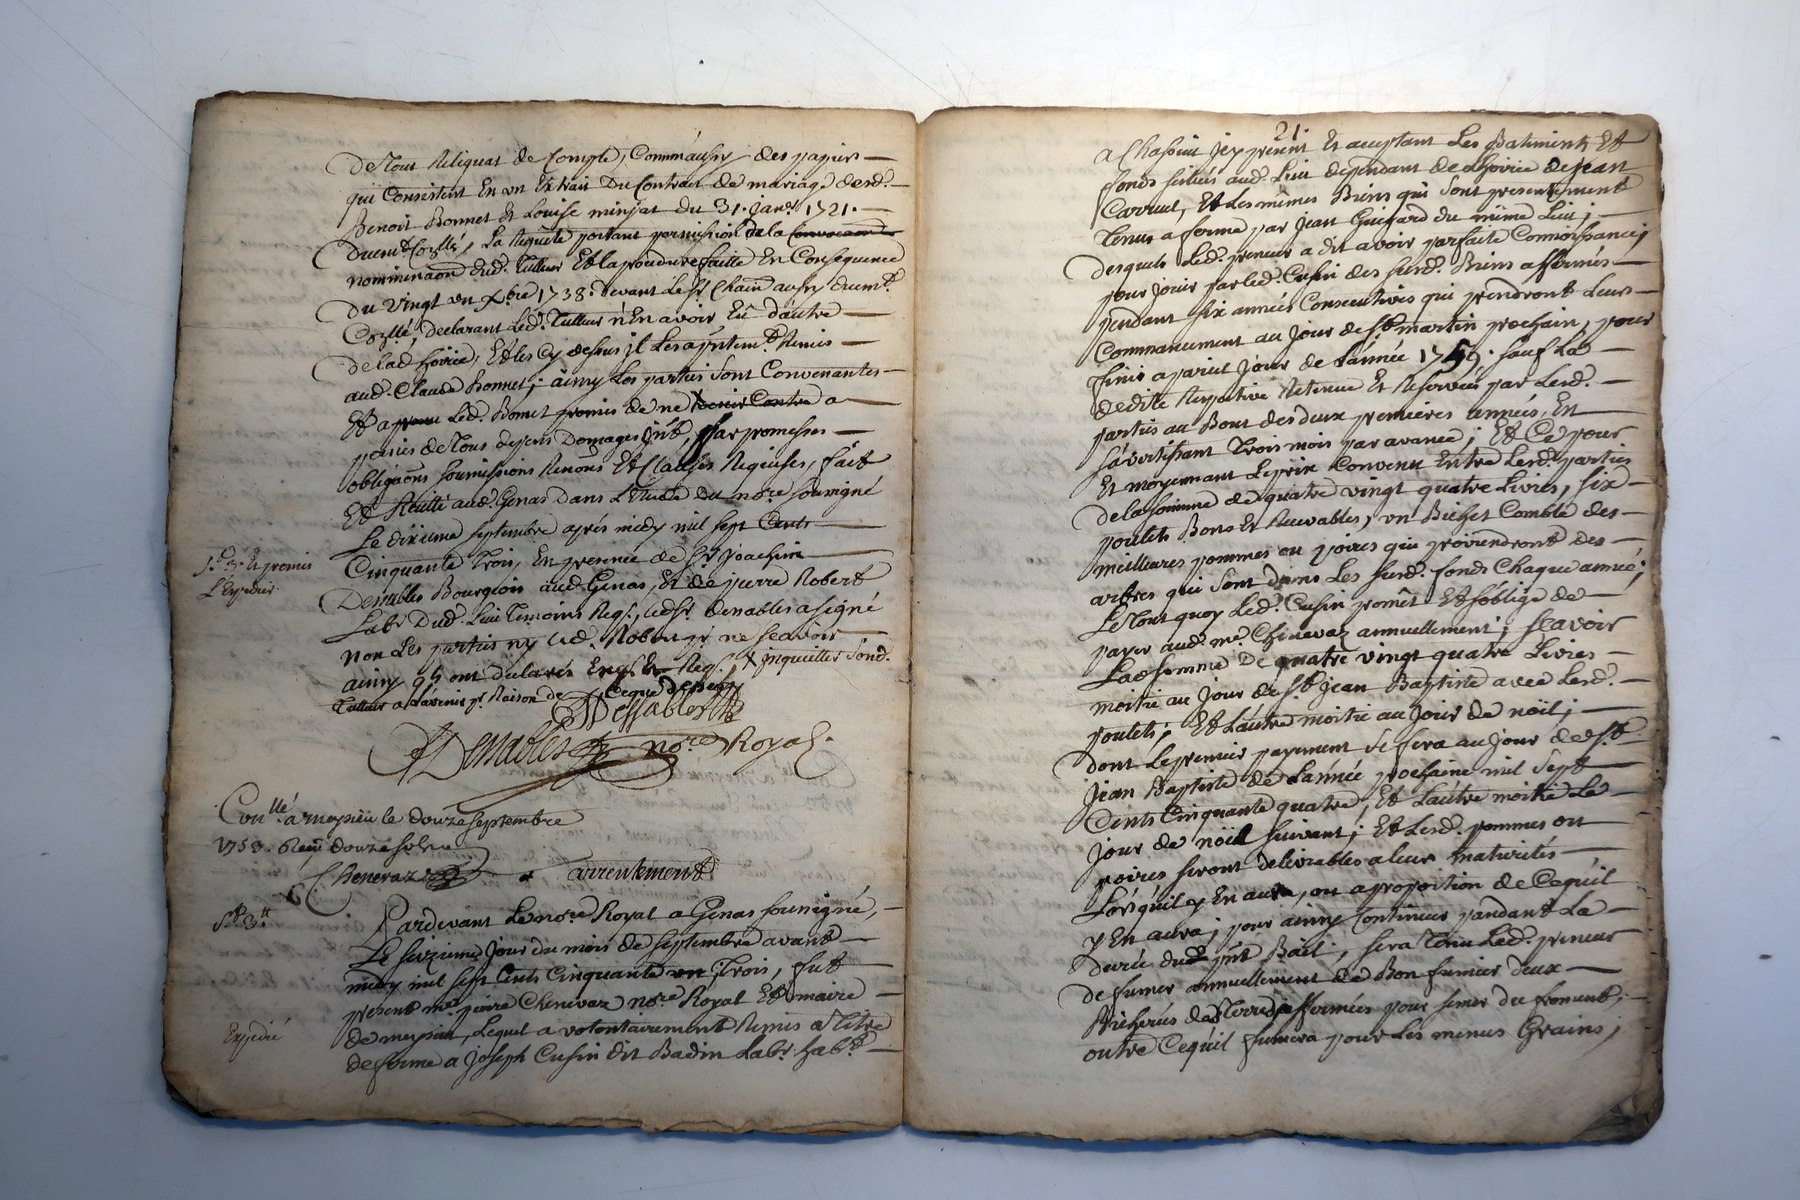 De Tout Reliquat de Compte, Comm'áussy des papiers
qui Consistent En un Extrait Du Contract de mariage desd.
Benoit Bonnet Et Louise minjat du 31. janr. 1721.
Duemt Coz̃llé, La Requête portant permission de la Convocaõn
nominnaõn dud. Tutteur Et la procedure faitte En Conséquence
Du Vingt un Xbre 1738. devant Le Sr. Chain aussy duemt.
Coz̃llé, Declarant Led. Tutteur n'En avoir Eû d'autre
de lad. hoirie, Et les Cy dessus jl Les a pntemt. Remis
aud. Claude Bonnet; áinsy Les parties Sont Convenantes
Et a promis Led. Bonnet promis de ne Venir Contre a
peines de Tous depens Domages jnts, par promesses
obligaõns soumissions Renons Et Clauses Requises, fait
Et Recitté aud. Genas dans L'Etude du nore. soussigné
Le dixieme septembre aprés midy mil sept Cents
Cinquante Trois, En presence de Sr. Joachim
Desnables Bourgeois aud. Genas, Et de pierre Robert
Labr. Dud. Lieu Temoins Reqs., Led. Sr. desnables a signé
non Les parties ny Led. Robert pr. ne scavoir
ainsy qls ont declarés Enqs. Et Reqs. X jnquietter Sond.
Tutteur a L'avenir pr. Raison de Ce que dessus
Dessables
Desnables nore. Royal.
St. 3. Et promis
L'Expedier.
Conllé á meysieu le douze septembre
1753. Reçu douze sols
Chenevaz
arrentement
St. 3tt
Pardevant Le nore. Royal a Genas soussigné,
Le seizieme Jour du mois de septembre avant
midy mil sept Cents Cinquante un Trois, fut
present me. pierre Chenevaz nore. Royal Et maire
de meysieu, Lequel a volontairement Remis a Titre
de ferme a Joseph Cusin dit Badin Labr. habt.
Expedié
21.
a Chassieu jcy present Et acceptant Les Batiments Et
fonds scitués aud. Lieu dependant de L'hoirie de Jean
Carruet, Et Les mêmes Biens qui Sont presentement
Tenus a ferme par Jean Guigard du même Lieu;
desquels Led. preneur a dit avoir parfaite Connoissance;
pour jouir par Led. Cusin des susd. Biens affermés
pendant Six années Consecutives qui prendront Leur
Commancement au Jour de St. martin prochain, pour
finir a pareil Jour de L'année 1759. Sauf La
dedite Respective Retenue Et Reservée par Lesd.
parties au Bout des deux premieres années, En
s'avertissant Trois mois par avance; Et Ce pour
Et moyennant Le prix Convenu Entre Lesd. parties
de la somme de quatre vingt quatre Livres, Six
poulets Bons Et Recevables, un Bichet Comble des
meilleures pommes ou poires qui proviendront des
arbres qui Sont dans Les susd. fonds Chaque année;
Le Tout quoy Led. Cusin promêt Et S'oblige de
payer aud. me. Chenevaz annuellement; scavoir
Lad. somme de quatre vingt quatre Livres
moitié au Jour de St. Jean Baptiste avec Lesd.
poulets; Et L'autre moitié au Jour de nöel;
dont Le premier payement Se fera au Jour de St.
Jean Baptiste de L'année prochaine mil Sept
Cents Cinquante quatre, Et L'autre moitié Le
Jour de nöel suivant; Et Lesd. pommes ou
poires seront delivrables a leur maturités
Lórs qu'il y En aura, ou a proportion de Ce qu'il
y En aura; pour ainsy Continuer pendant La
durée dud. pnt Bail; sera Tenu Led. preneur
de fumer annuellement de Bon fumier deux
Bicherées de Terre affermées pour semer du froment,
outre Ce qu'il fumera pour Les menus Grains;